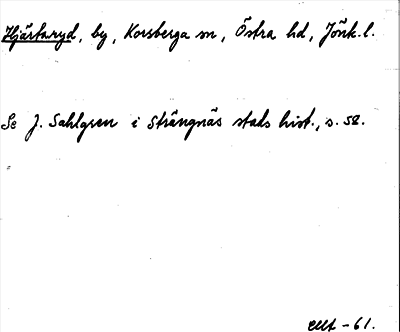 Hjärtaryd, by, Korsberga sn, Östra hd, Jönk. l.
Se J. Sahlgren i Strängnäs stads hist., s. 58.
-61.